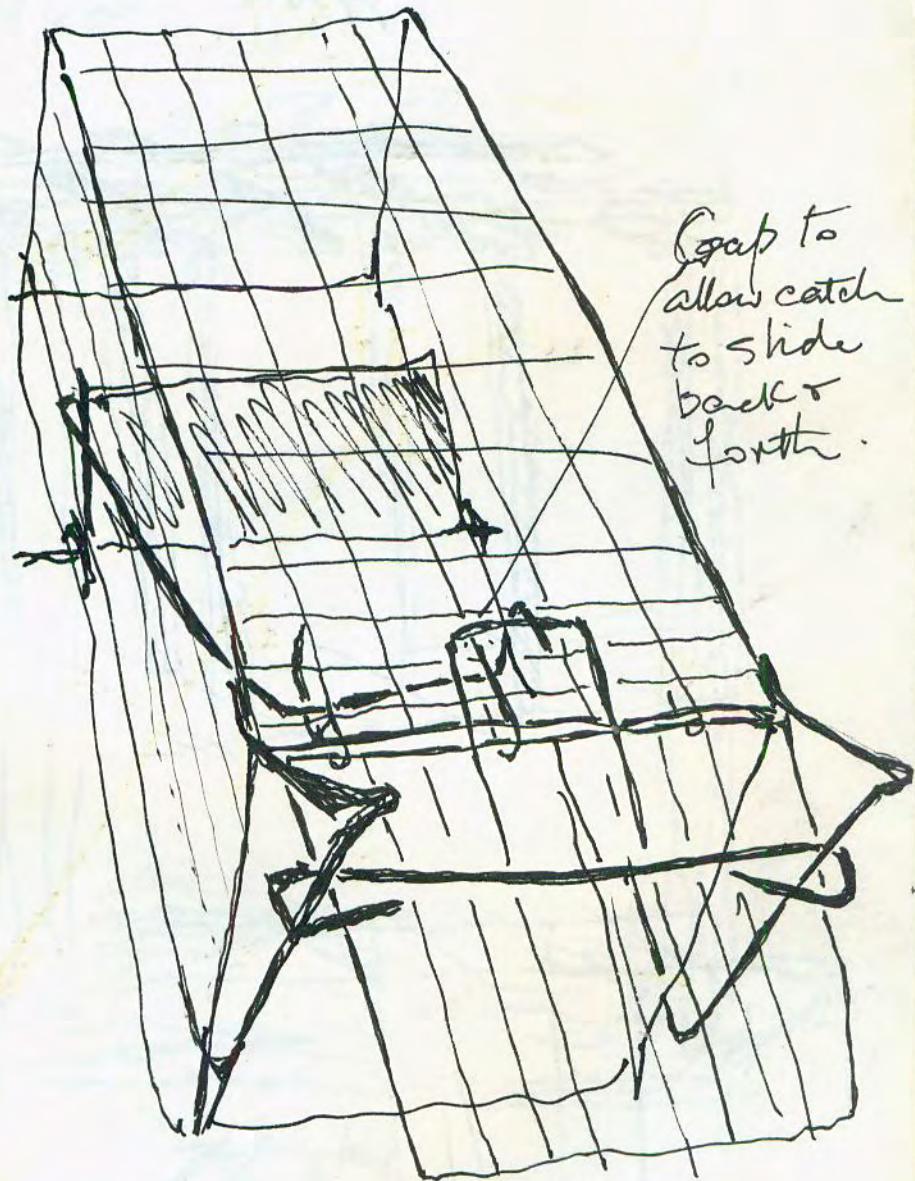 Gap to
allow catch
to slide
back &
forth.